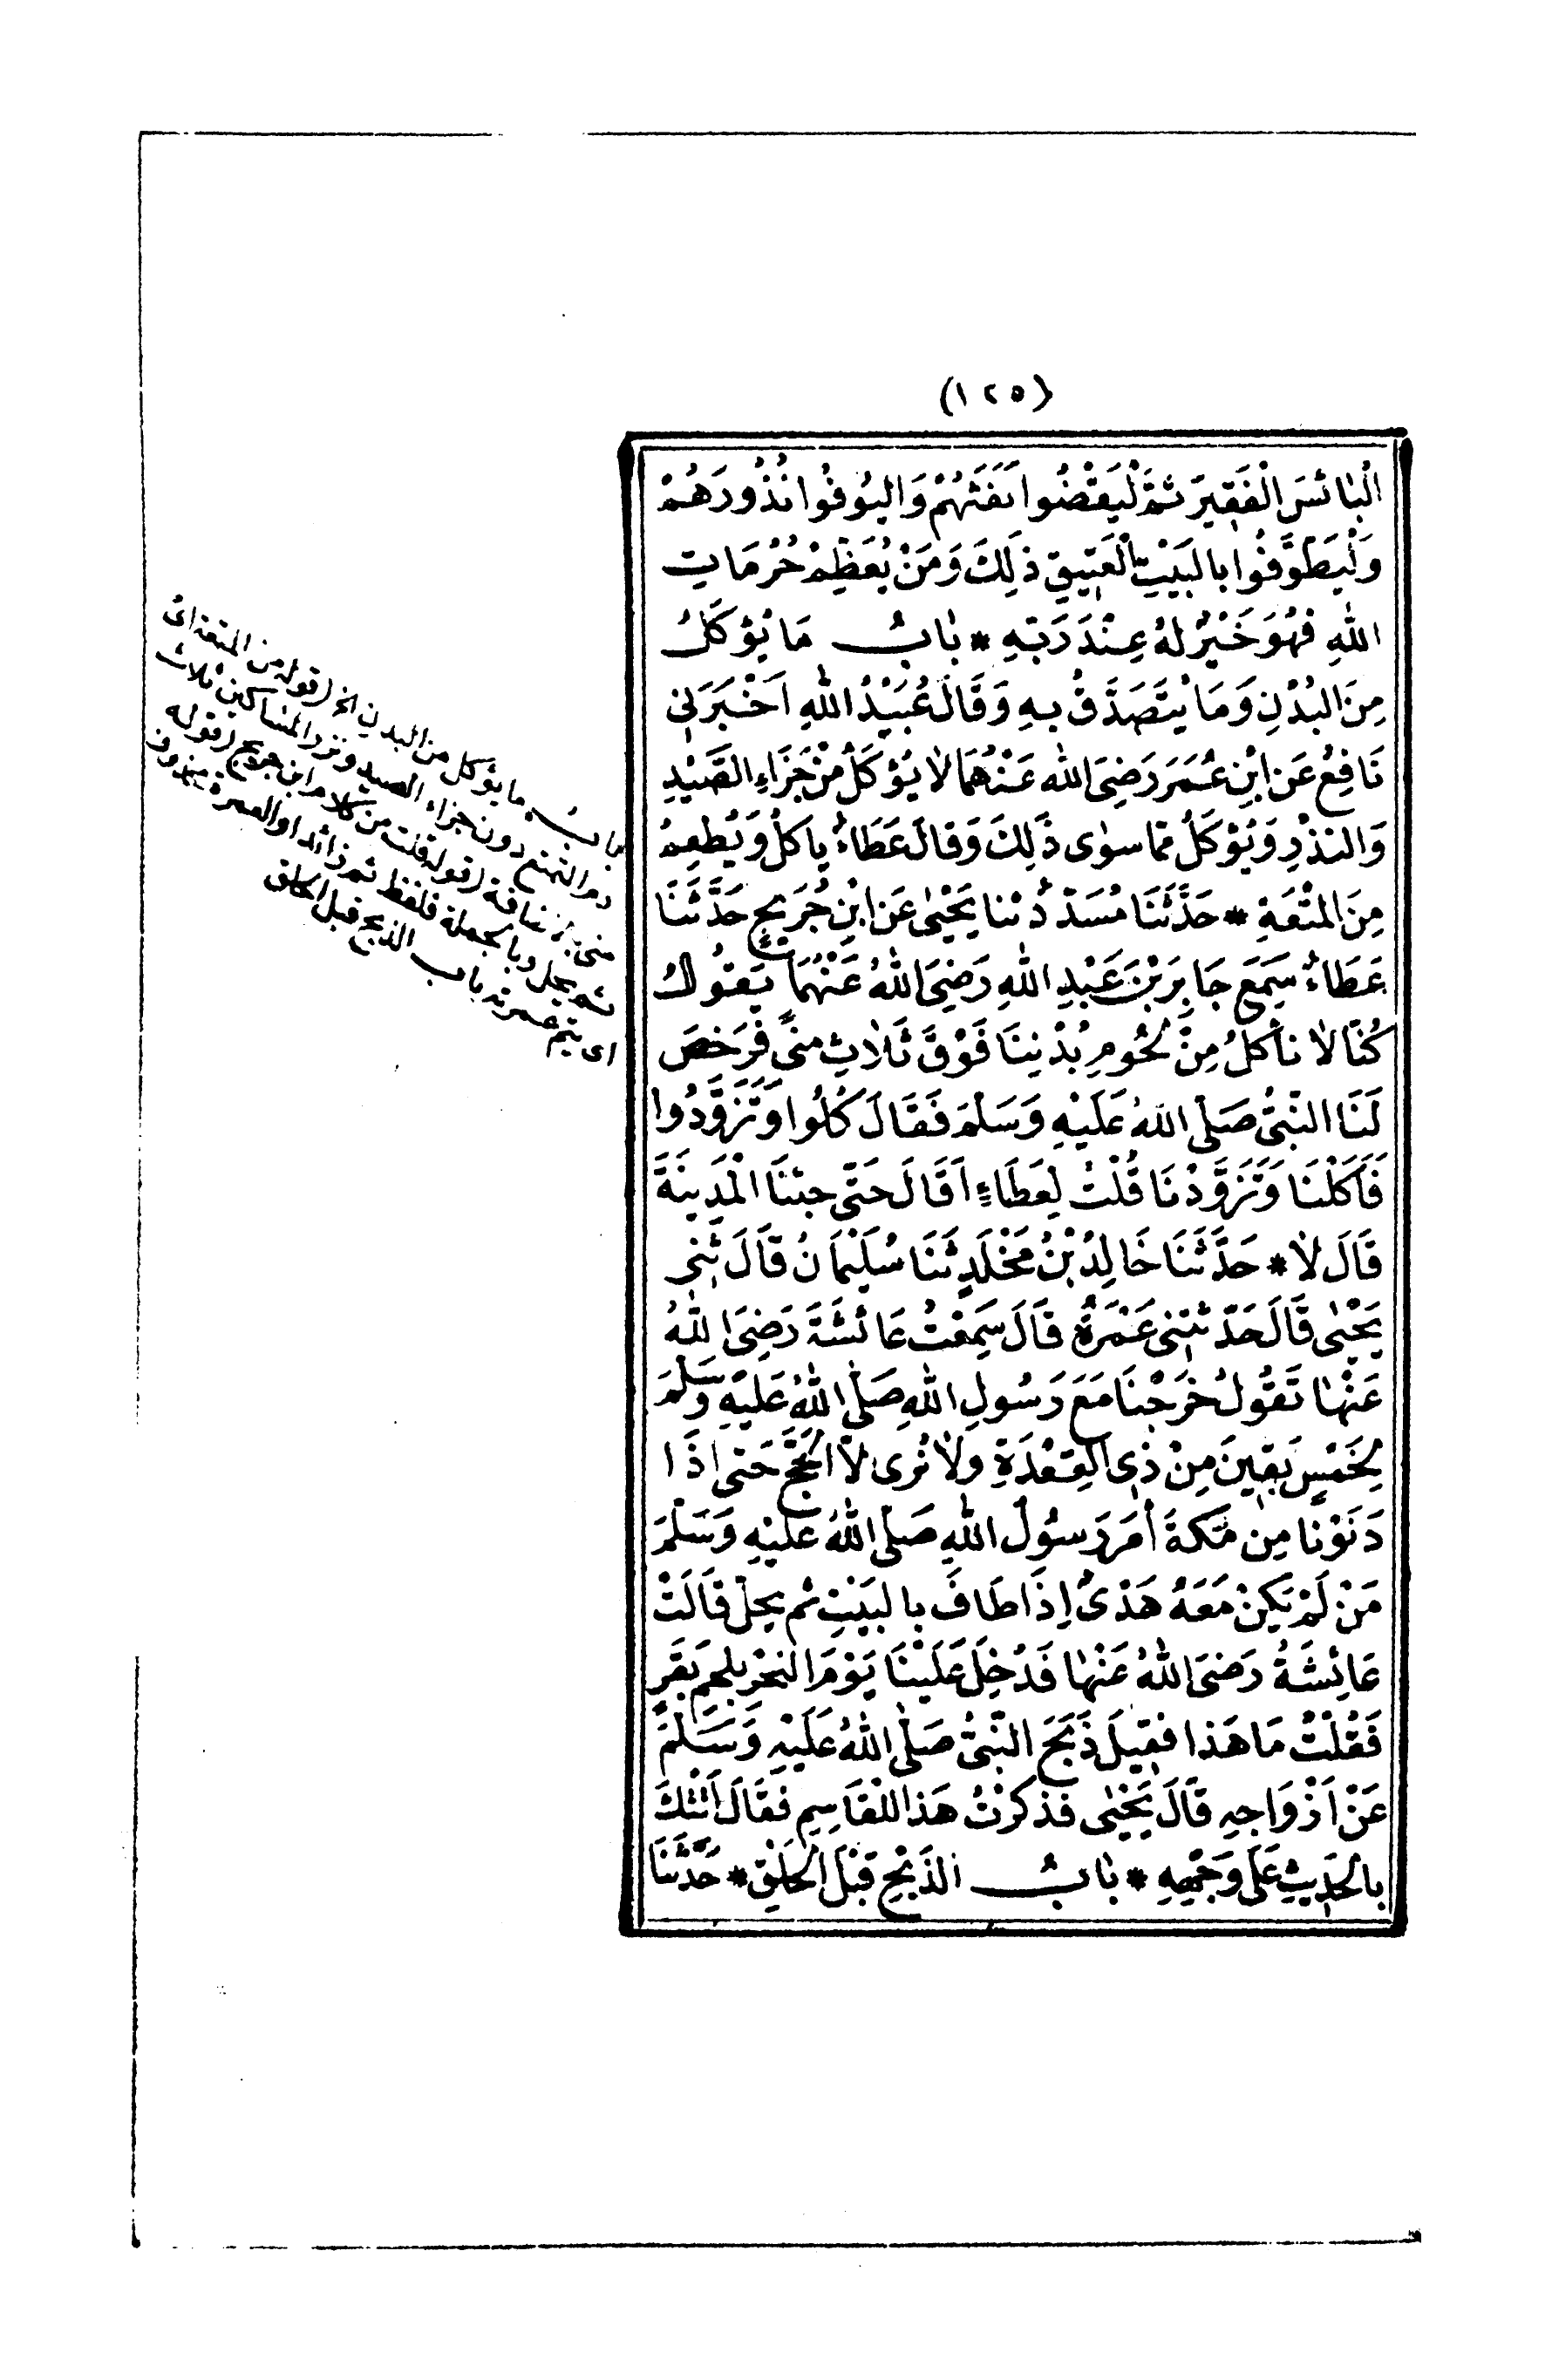 (١٢٥)
الْبَائِسَ الْفَقِيرَ ثُمَّ لْيَقْضُوا تَفَثَهُمْ وَالْيُوفُوا نُذُورَهُمْ
وَلْيَطَّوَّفُوا بِالبَيْتِ الْعَتِيقِ ذَلِكَ وَمَنْ يُعَظِّمْ حُرُمَاتِ
اللهِ فَهُوَ خَيْرٌ لَهُ عِنْدَ رَبِّهِ * بَابُ مَا يُؤْكَلُ
مِنَ البُدْنِ وَمَا يُتَصَدَّقُ بِهِ وَقَالَ عُبَيْدُ اللهِ اَخْبَرَنِى
نَافِعٌ عَنِ ابْنِ عُمَرَ رَضِىَ اللهُ عَنْهُمَا لَا يُؤْكَلُ مِنْ جَزَاءِ الصَّيْدِ
وَالنَذْرِ وَيُؤْكَلُ مِمَّا سِوٰى ذٰلِكَ وَقَالَ عَطَاءٌ يَاكُلُ وَيُطْعِمُ
مِنَ المُتْعَةِ * حَدَّثَنَا مُسَدَّدٌ ثَنَا يَحْيٰى عَنِ ابْنِ جُرَيْجٍ حَدَّثَنَا
عَطَاءٌ سَمِعَ جَابِرَ بْنَ عَبْدِ اللهِ رَضِىَ اللهُ عَنْهُمَا يَقُولُ
كُنَّا لَا نَأكُلُ مِنْ لُحُومِ بُدْنِنَا فَوْقَ ثَلَاثِ مِنًى فَرَخَّصَ
لَنَا النَّبِىُّ صَلَّى اللهُ عَلَيْهِ وَسَلَّمَ فَقَالَ كُلُوا وَتَزَوَّدُوا
فَاَكَلْنَا وَتَزَوَّدْنَا قُلْتُ لِعَطَاءٍ اَقَالَ حَتَّى جِئْنَا الْمَدِينَةَ
قَالَ لَا * حَدَّثَنَا خَالِدُ بْنُ مَخْلَدٍ ثَنَا سُلَيْمَانُ قَالَ ثَنِى
يَحْيٰى قَالَ حَدَّثَتْنِى عَمْرَةُ قَالَ سَمِعْتُ عَائِشَةَ رَضِىَ اللهُ
عَنْهَا تَقُولُ خَرَجْنَا مَعَ رَسُولِ اللهِ صَلَّى اللهُ عَلَيْهِ وَسَلَّمَ
لِخَمْسٍ بَقِينَ مِنْ ذِى القِعْدَةِ وَلَا نُرٰى لَّا الحَجَّ حَتَّى اِذَا
دَنَوْنَا مِنْ مَكَّةَ أَمَرَ رَسُولُ اللهِ صَلَّى اللهُ عَلَيْهِ وَسَلَّمَ
مَنْ لَمْ يَكُنْ مَعَهُ هَدْىٌ اِذَا طَافَ بِالبَيْتِ ثُمَّ يَحِلُّ قَالَتْ
عَائِشَةُ رَضِىَ اللهُ عَنْهَا فَدُخِلَ عَلَيْنَا يَوْمَ النَّحْرِ بِلَحْمِ بَقَرٍ
فَقُلْتُ مَا هَذَا فَقِيلَ ذَبَحَ النَّبِىُّ صَلَّى اللهُ عَلَيْهِ وَسَلَّمَ
عَنْ اَزْوَاجِهِ قَالَ يَحْيٰى فَذَكَرْتُ هَذَا لِلْقَاسِمِ فَقَالَ أَتَتْكَ
بِالحَدِيثِ عَلَى وَجْهِهِ * بَابُ الذَبْحِ قَبْلَ الحَلْقِ * حَدَّثَنَا
بابُ ما يؤكل من البدن الخ (قوله من المتعة) اى
دم التمتع دون جزاء الصيد ونذر المساكين ثلاث
منى بإضافة (قوله قلت من كلام ابن جريج (قوله
ثم يحل وبالجملة فلفظ ثم زائد او العمرة
اى يتم عمرته باب الذبح قبل الحلق